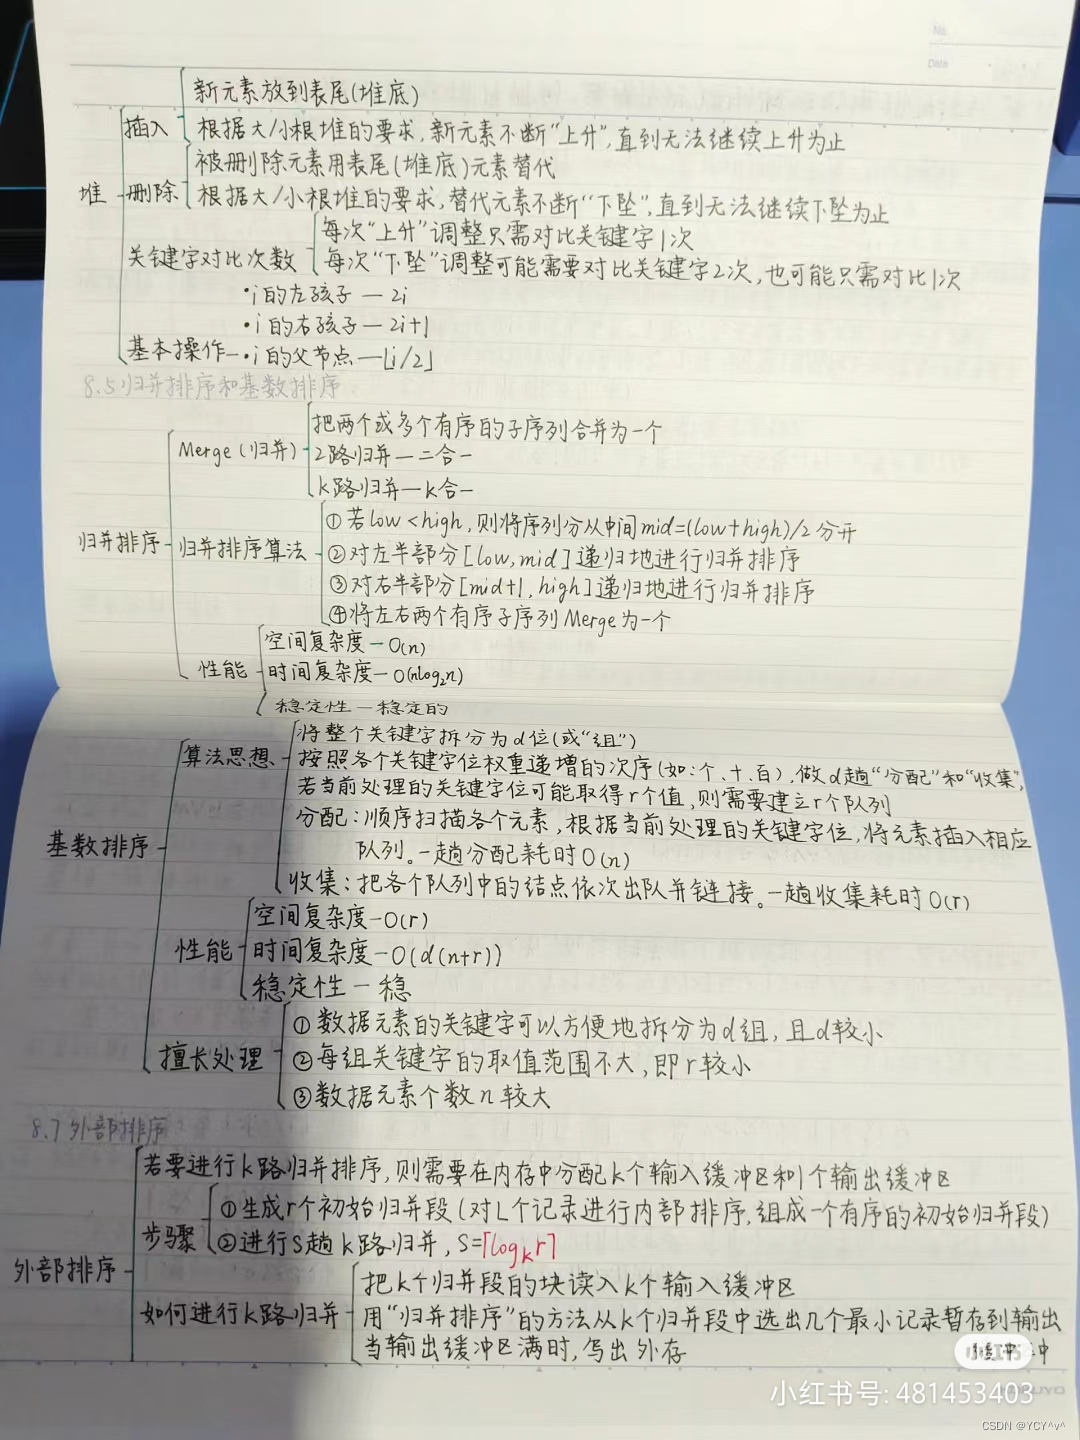 No.
Date
新元素放到表尾(堆底)
插入
根据大/小根堆的要求,新元素不断“上升”,直到无法继续上升为止
被删除元素用表尾(堆底)元素替代
堆
删除
根据大/小根堆的要求,替代元素不断“下坠”,直到无法继续下坠为止
每次“上升”调整只需对比关键字1次
关键字对比次数
每次“下坠”调整可能需要对比关键字2次,也可能只需对比1次
·i的左孩子—2i
·i的右孩子—2i+1
基本操作—·i的父节点—⌊i/2⌋
8.5归并排序和基数排序
把两个或多个有序的子序列合并为一个
Merge(归并)
2路归并—二合一
k路归并—k合一
①若low<high,则将序列分从中间mid=(low+high)/2分开
归并排序
归并排序算法
②对左半部分[low,mid]递归地进行归并排序
③对右半部分[mid+1,high]递归地进行归并排序
④将左右两个有序子序列Merge为一个
空间复杂度—O(n)
性能
时间复杂度—O(nlog₂n)
稳定性—稳定的
将整个关键字拆分为d位(或“组”)
算法思想
按照各个关键字位权重递增的次序(如:个、十、百),做d趟“分配”和“收集”,
若当前处理的关键字位可能取得r个值,则需要建立r个队列
分配:顺序扫描各个元素,根据当前处理的关键字位,将元素插入相应
基数排序
队列。一趟分配耗时O(n)
收集:把各个队列中的结点依次出队并链接。一趟收集耗时O(r)
空间复杂度—O(r)
性能
时间复杂度—O(d(n+r))
稳定性—稳
①数据元素的关键字可以方便地拆分为d组,且d较小
擅长处理
②每组关键字的取值范围不大,即r较小
③数据元素个数n较大
8.7外部排序
若要进行k路归并排序,则需要在内存中分配k个输入缓冲区和1个输出缓冲区
①生成r个初始归并段(对L个记录进行内部排序,组成一个有序的初始归并段)
步骤
②进行S趟k路归并,S=⌈logₖr⌉
外部排序
把k个归并段的块读入k个输入缓冲区
如何进行k路归并
用“归并排序”的方法从k个归并段中选出几个最小记录暂存到输出
当输出缓冲区满时,写出外存
小红书
小红书号: 481453403
CSDN @YCY^v^